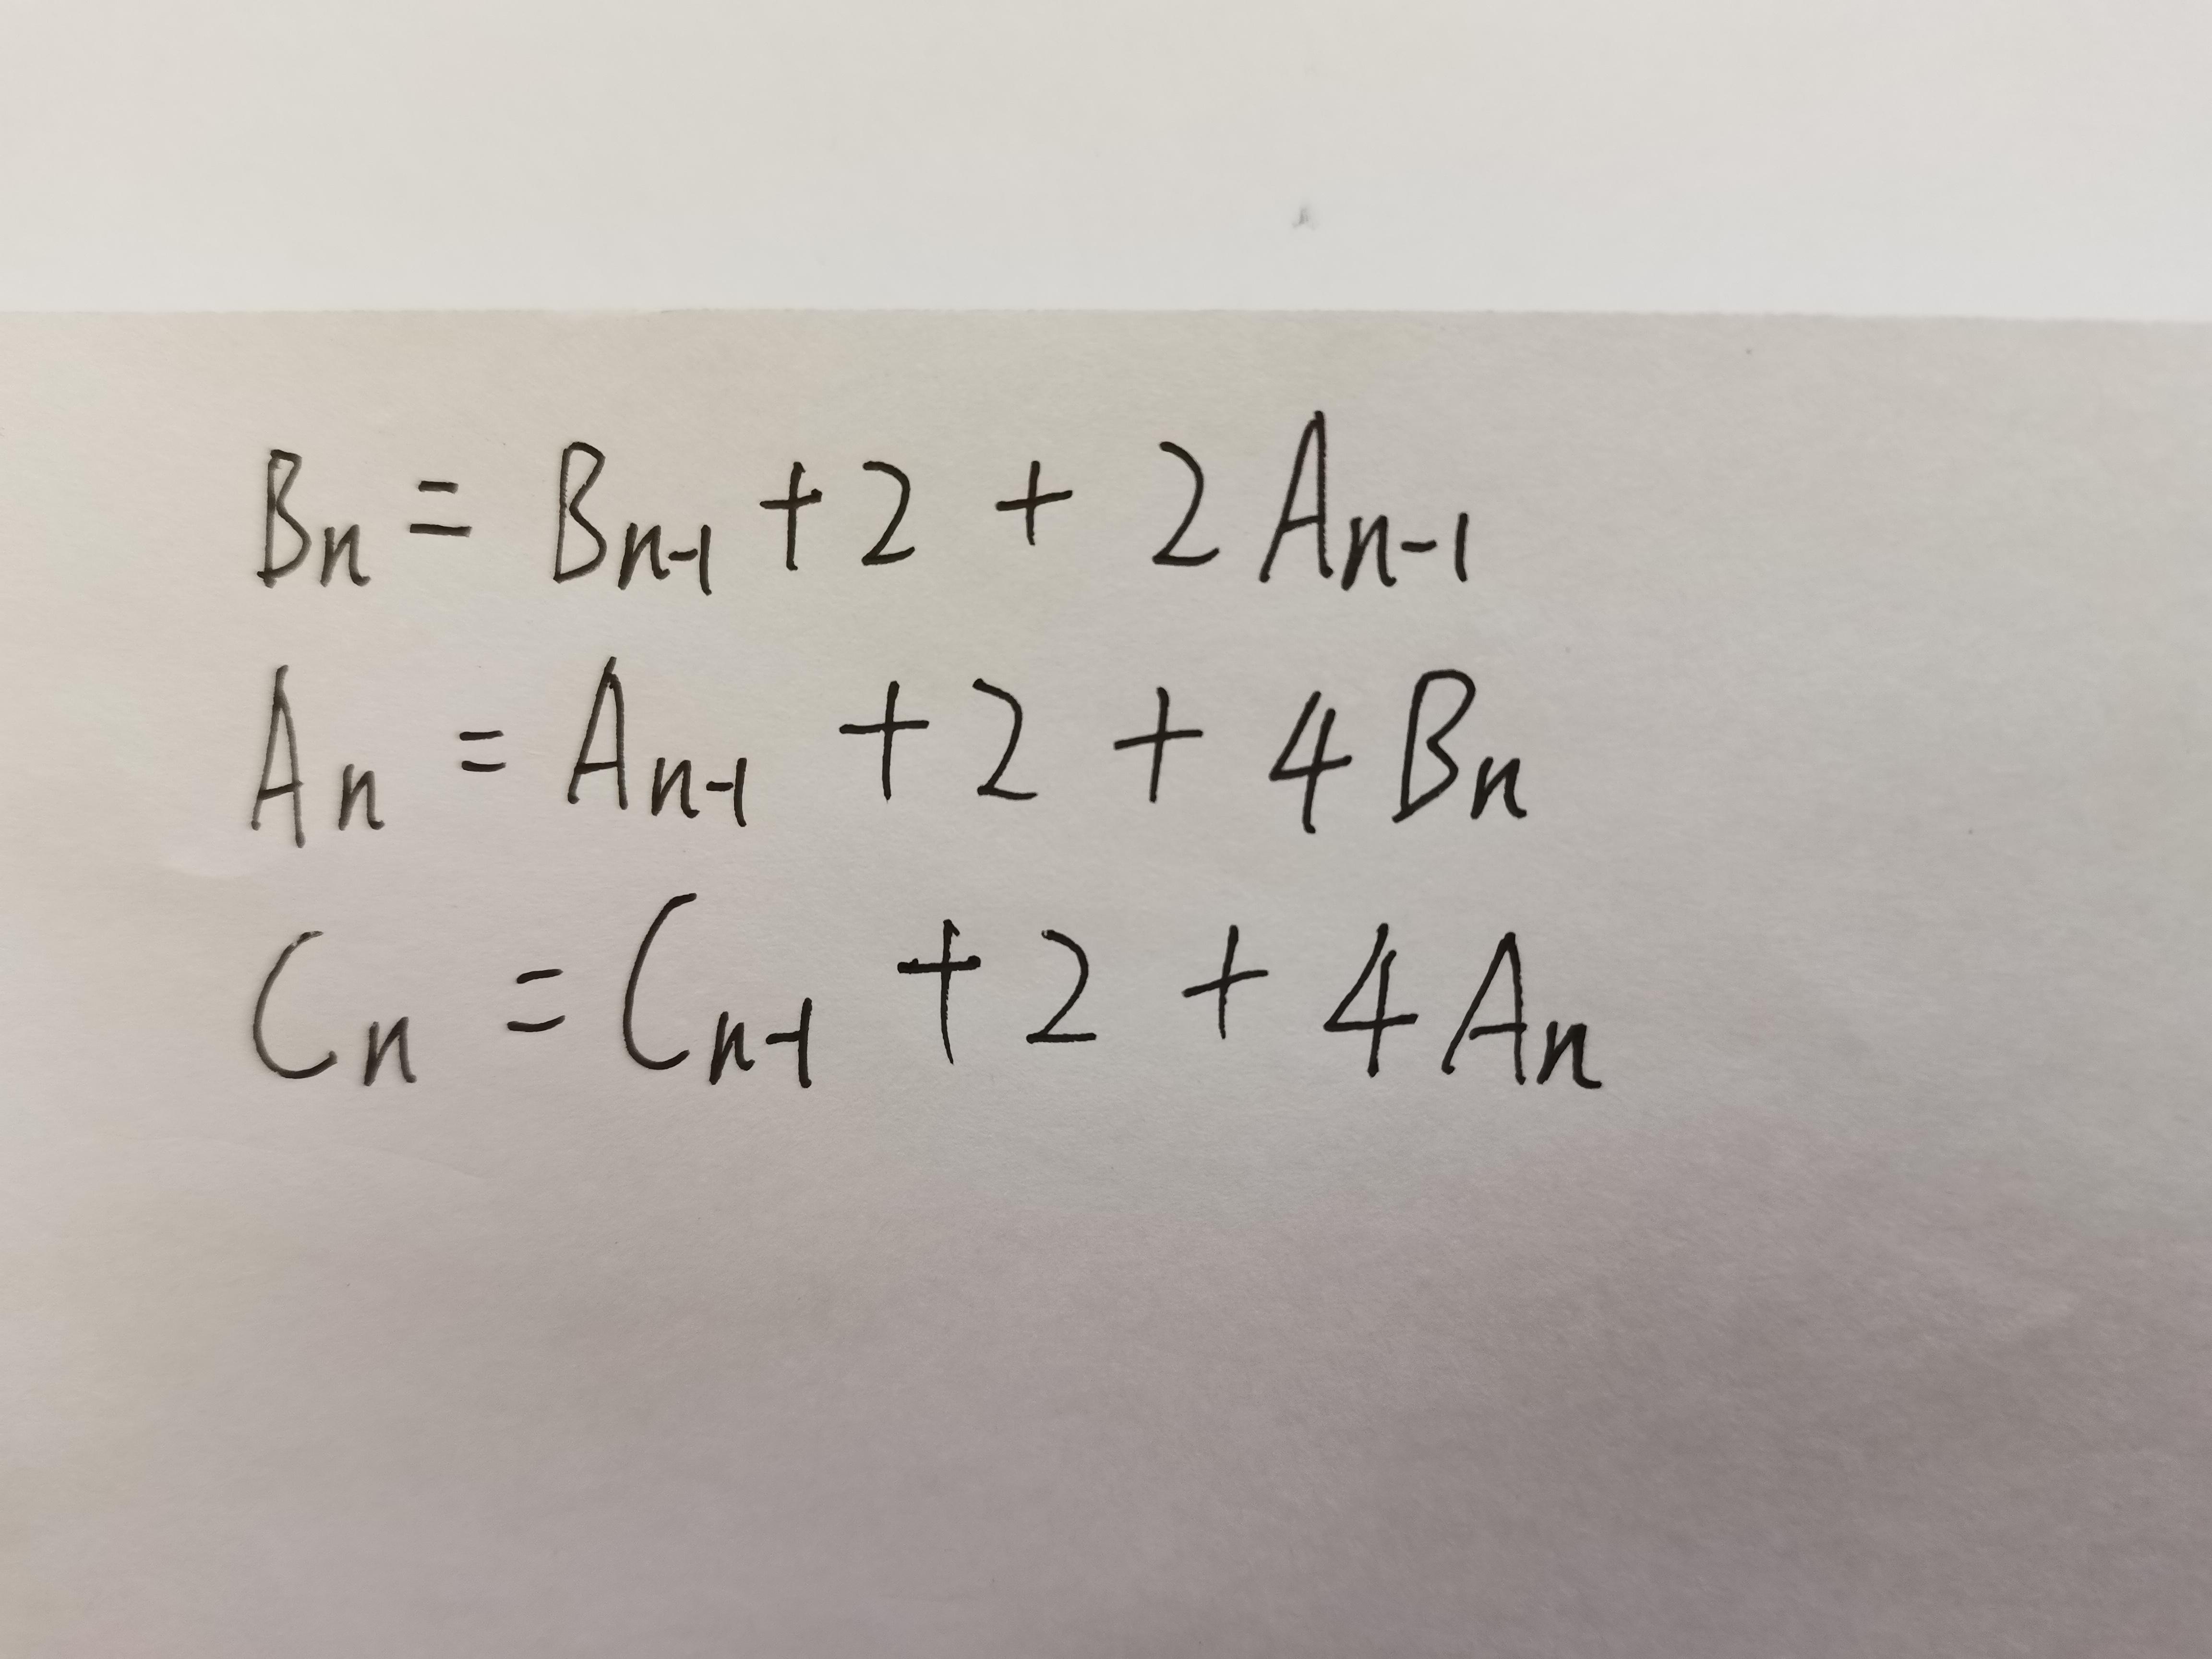 Bn = Bn-1 + 2 + 2An-1
An = An-1 + 2 + 4Bn
Cn = Cn-1 + 2 + 4An